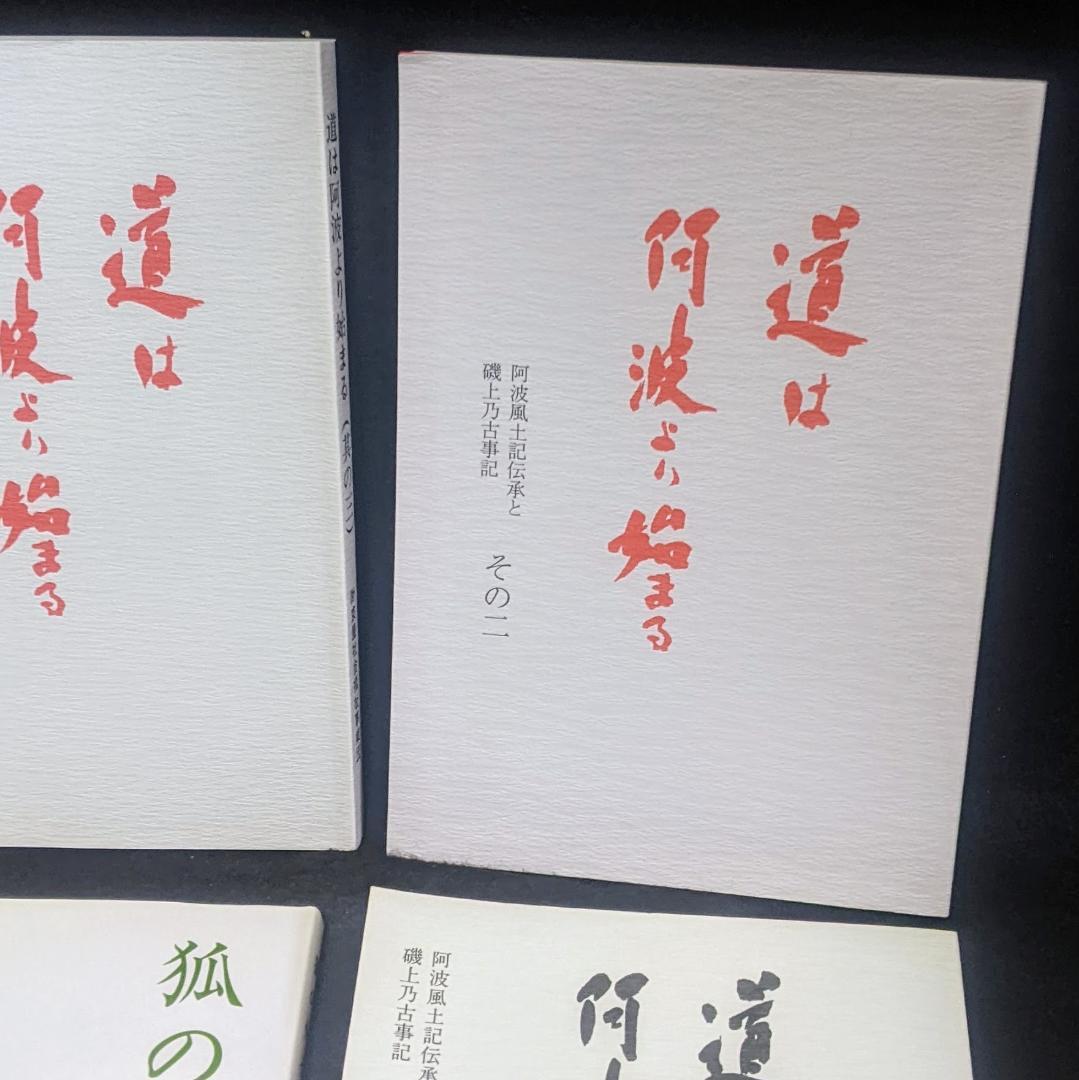 道は
阿波より始まる
阿波風土記伝承と
磯上乃古事記
その二
道は阿波より始まる（其の三）
道は
阿波より始まる
道
阿
阿波風土記伝承
磯上乃古事記
狐の